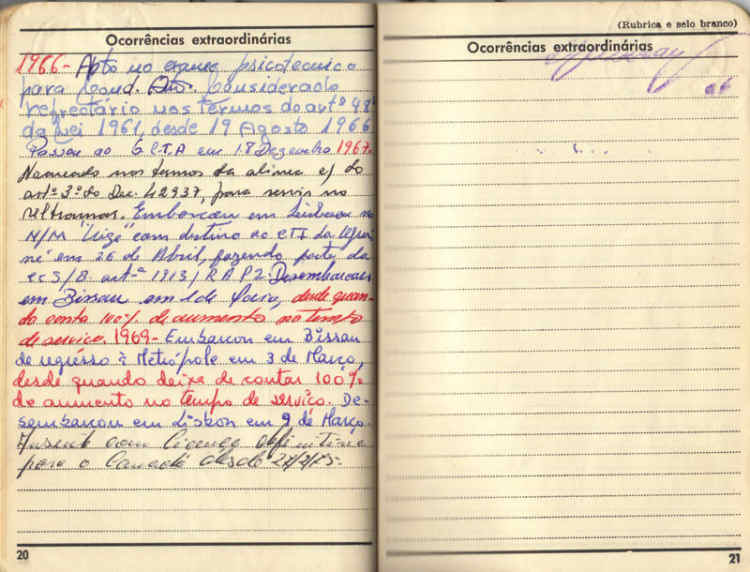 Ocorrências extraordinárias
1966 - Apto no exame psicotecnico
para Cond. Auto. Considerado
refractário nos termos do artº 48º
da Lei 1961, desde 19 Agosto 1966
Passou ao G.C.T.A em 18 Dezembro. 1967-
Nomeado nos termos da alinea c) do
artº 3º do Dec. 42937, para servir no
ultramar. Embarcou em Lisboa no
N/M "Uige" com destino ao CTI da Guiné
né em 26 de Abril, fazendo parte da
art.ª 1913/RAP2. Desembarcou
em Bissau em 1 de Maio, desde quan-
do conta 100% de aumento no tempo
de serviço. 1969 - Embarcou em Bissau
de regresso à Metrópole em 3 de Março,
desde quando deixa de contar 100%
de aumento no tempo de serviço. De-
sembarcou em Lisboa em 9 de Março.
Ausente com licença definitiva
para o Canadá desde
20
(Rubrica e selo branco)
Ocorrências extraordinárias
21